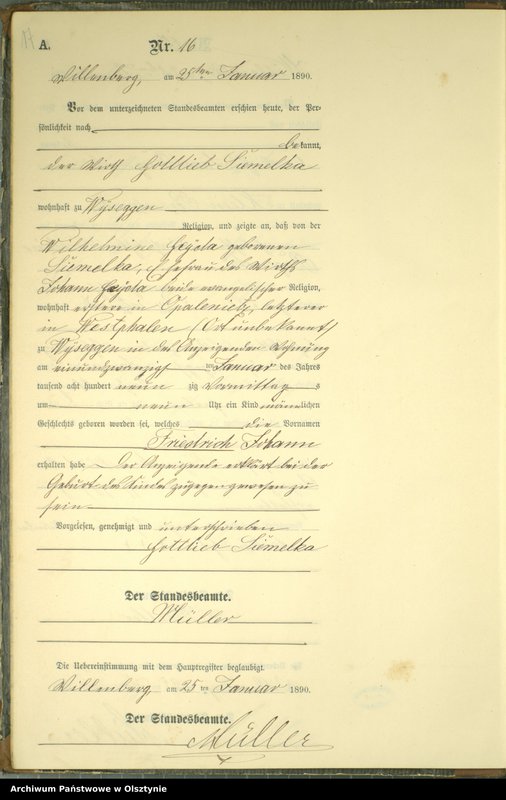 17
A.
Nr. 16
Willenberg, am 25ten Januar 1890.
Vor dem unterzeichneten Standesbeamten erschien heute, der Per-
sönlichkeit nach
bekannt,
der Wirth Gottlieb Siemelka
wohnhaft zu Wyseggen
Religion, und zeigte an, daß von der
Wilhelmine geborenen
Siemelka, Ehefrau des Wirths
Johann beide evangelischer Religion,
wohnhaft erstere in Opalenietz, letzterer
in Westphalen (Ort unbekannt)
zu Wyseggen in des Anzeigenden Wohnung
am einundzwanzigsten Januar des Jahres
tausend acht hundert neunzig Vormittags
um neun Uhr ein Kind männlichen
Geschlechts geboren worden sei, welches die Vornamen
Friedrich Johann
erhalten habe Der Anzeigende erklärt bei der
Geburt des Kindes zugegen gewesen zu
sein
Vorgelesen, genehmigt und unterschrieben
Gottlieb Siemelka
Der Standesbeamte.
Müller
Die Uebereinstimmung mit dem Hauptregister beglaubigt.
Willenberg am 25ten Januar 1890.
Der Standesbeamte.
Müller
Archiwum Państwowe w Olsztynie